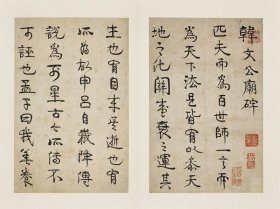 韓文公廟碑
匹夫而為百世師一言而
為天下法是皆有以參天
地之化關盛衰之運其
生也有自来其逝也有
所為故申呂自嶽降傅
說為列星古今所傳不
可誣也孟子曰我善養